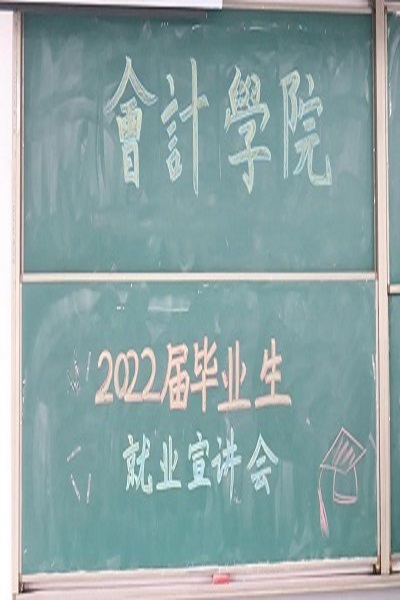 會計學院
2022届毕业生
就业宣讲会